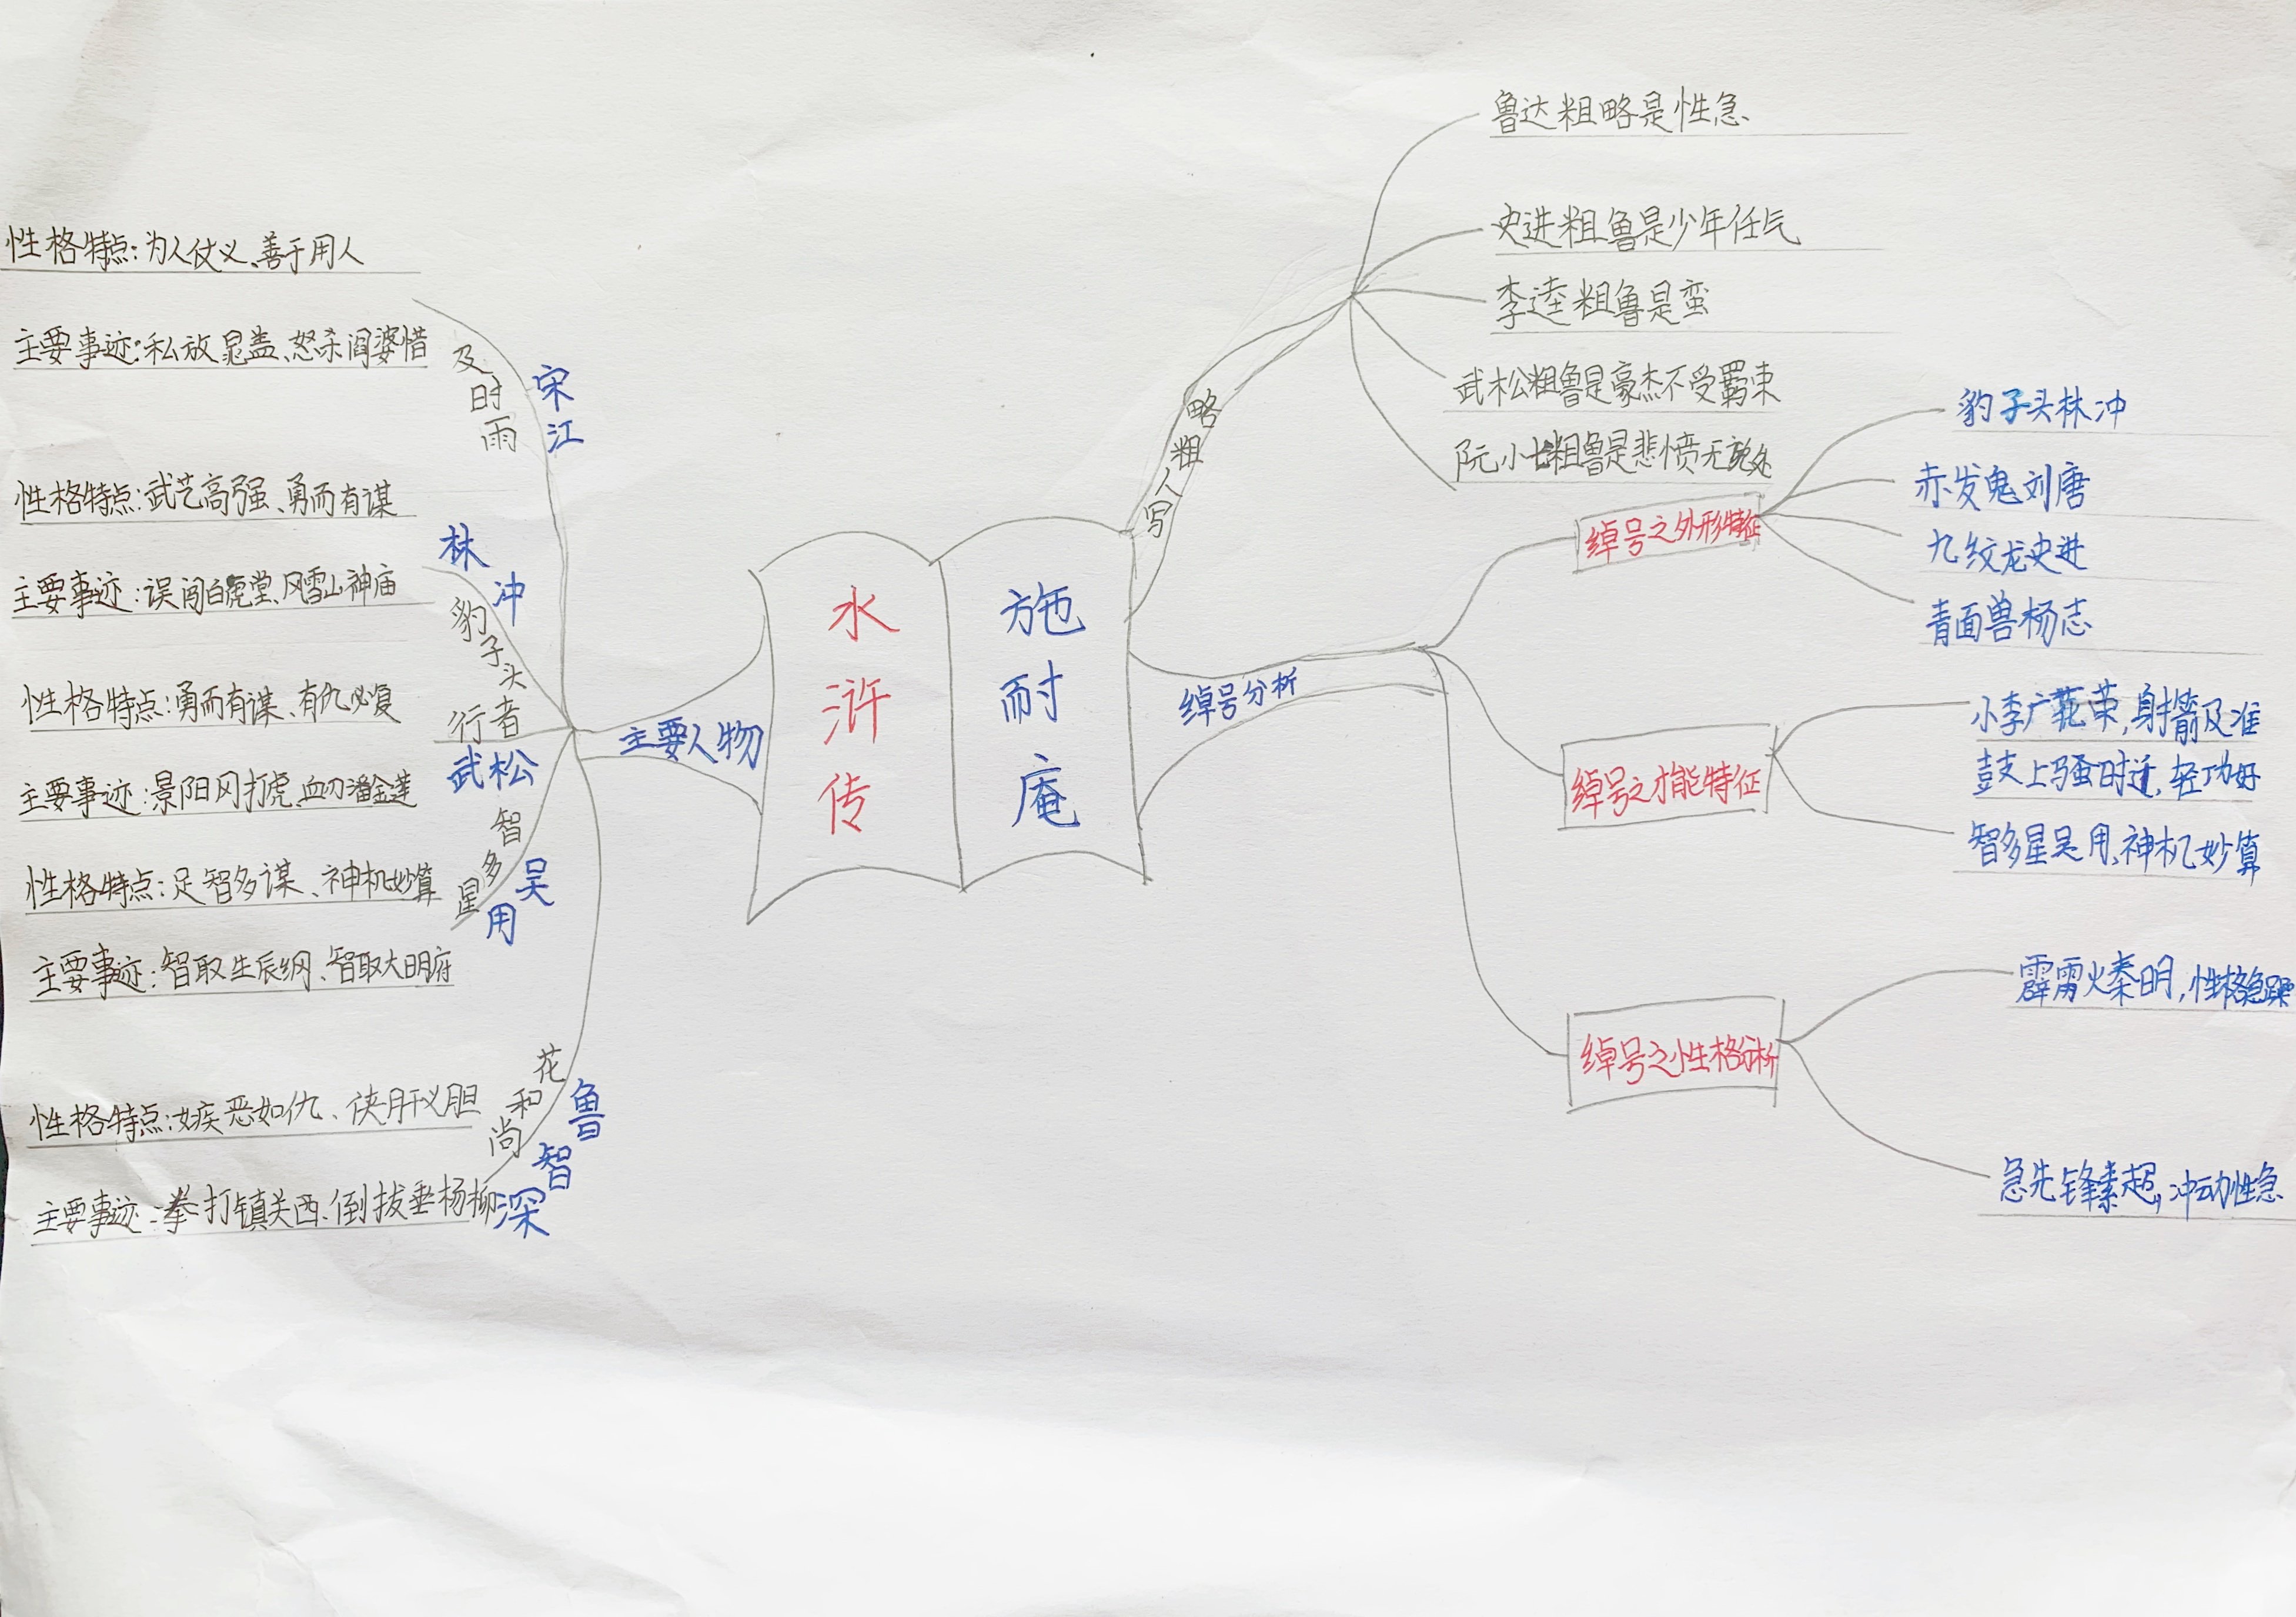 水浒传
施耐庵
主要人物
宋江
及时雨
性格特点:为人仗义、善于用人
主要事迹:私放晁盖、怒杀阎婆惜
林冲
豹子头
性格特点:武艺高强、勇而有谋
主要事迹:误闯白虎堂、风雪山神庙
行者
武松
性格特点:勇而有谋、有仇必复
主要事迹:景阳冈打虎、血刃潘金莲
智多星
吴用
性格特点:足智多谋、神机妙算
主要事迹:智取生辰纲、智取大明府
花和尚
鲁智深
性格特点:嫉恶如仇、侠肝义胆
主要事迹:拳打镇关西、倒拔垂杨柳
写人粗略
鲁达粗略是性急
史进粗鲁是少年任气
李逵粗鲁是蛮
武松粗鲁是豪杰不受羁束
阮小七粗鲁是悲愤无说处
绰号分析
绰号之外形特征
豹子头林冲
赤发鬼刘唐
九纹龙史进
青面兽杨志
绰号之才能特征
小李广花荣,射箭及准
鼓上骚时迁,轻功好
智多星吴用,神机妙算
绰号之性格分析
霹雳火秦明,性格急躁
急先锋索超,冲动性急